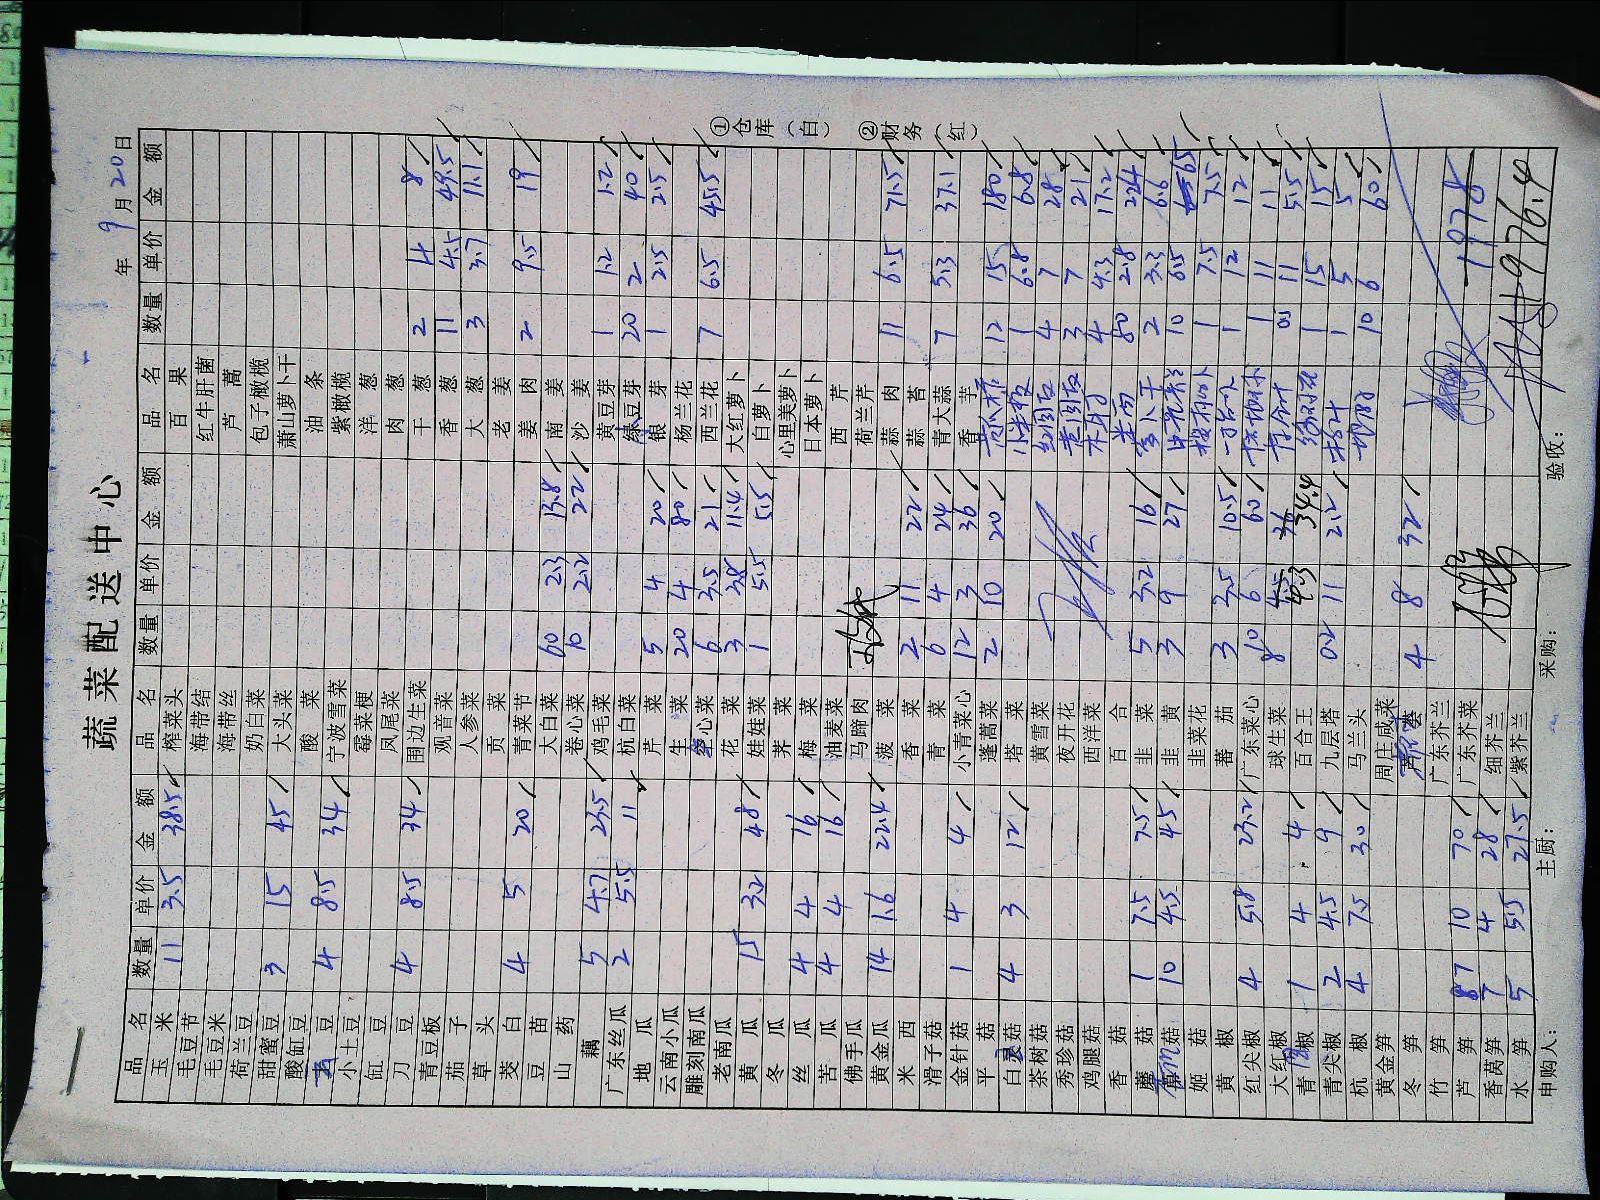 蔬菜配送中心
年 9 月 20 日
品名 数量 单价 金额 品名 数量 单价 金额 品名 数量 单价 金额
玉米 11 3.5 38.5 榨菜头 百果
毛豆节 海带结 红牛肝菌
毛豆米 海带丝 芦蒿
荷兰豆 奶白菜 包子橄榄
甜蜜豆 3 15 45 大头菜 萧山萝卜干
酸缸豆 酸菜 油条
豆 4 8.5 34 宁波雪菜 紫橄榄
小土豆 霉菜梗 洋葱
缸豆 凤尾菜 肉葱
刀豆 4 8.5 34 围边生菜 干葱 2 4 8
青豆板 观音菜 香葱 11 4.5 49.5
茄子 人参菜 大葱 3 3.7 11.1
草头 贡菜 老姜
茭白 4 5 20 青菜节 姜肉 2 9.5 19
豆苗 大白菜 60 2.3 13.8 南姜
山药 卷心菜 10 2.2 22 沙姜
藕 5 4.7 23.5 鸡毛菜 黄豆芽 1 1.2 1.2
广东丝瓜 2 5.5 11 杭白菜 绿豆芽 20 2 40
地瓜 芹菜 5 4 20 银芽 1 2.5 2.5
云南小瓜 生菜 20 4 80 杨兰花
雕刻南瓜 心菜 6 3.5 21 西兰花 7 6.5 45.5
老南瓜 花菜 3 3.8 11.4 大红萝卜
黄瓜 15 3.2 48 娃娃菜 1 5.5 5.5 白萝卜
冬瓜 荠菜 心里美萝卜
丝瓜 4 4 16 梅菜 日本萝卜
苦瓜 4 4 16 油麦菜 西芹
佛手瓜 马蹄肉 荷兰芹
黄金瓜 14 1.6 22.4 菠菜 蒜肉 11 6.5 71.5
米西 香菜 2 11 22 蒜苔
滑子菇 青菜 6 4 24 青大蒜 7 5.3 37.1
金针菇 1 4 4 小青菜心 12 3 36 香芋
平菇 蓬蒿菜 2 10 20 12 15 180
白灵菇 4 3 12 塔菜 1 6.8 6.8
茶树菇 黄雪菜 4 7 28
秀珍菇 夜开花 3 7 21
鸡腿菇 西洋菜 4 4.3 17.2
香菇 百合 80 2.8 224
蘑菇 1 7.5 7.5 韭菜 5 3.2 16 萝卜干 2 3.3 6.6
菇 10 4.5 45 韭黄 3 9 27 10 6.5 65
姬菇 韭菜花 1 7.5 7.5
黄椒 蕃茄 3 3.5 10.5 1 12 12
红尖椒 4 5.8 23.2 广东菜心 10 6 60 1 11 11
大红椒 球生菜 8 4.3 34.4 0.5 11 5.5
青圆椒 1 4 4 百合王 1 15 15
青尖椒 2 4.5 9 九层塔 0.2 11 2.2 1 5 5
杭椒 4 7.5 30 马兰头 10 6 60
黄金笋 周庄咸菜
冬笋 4 8 32
竹笋 广东芥兰
芦笋 7 10 70 广东芥菜 1978
香莴笋 7 4 28 细芥兰
水笋 5 5.5 27.5 紫芥兰 1976.4
申购人： 主厨： 采购： 验收：
①仓库（白） ②财务（红）